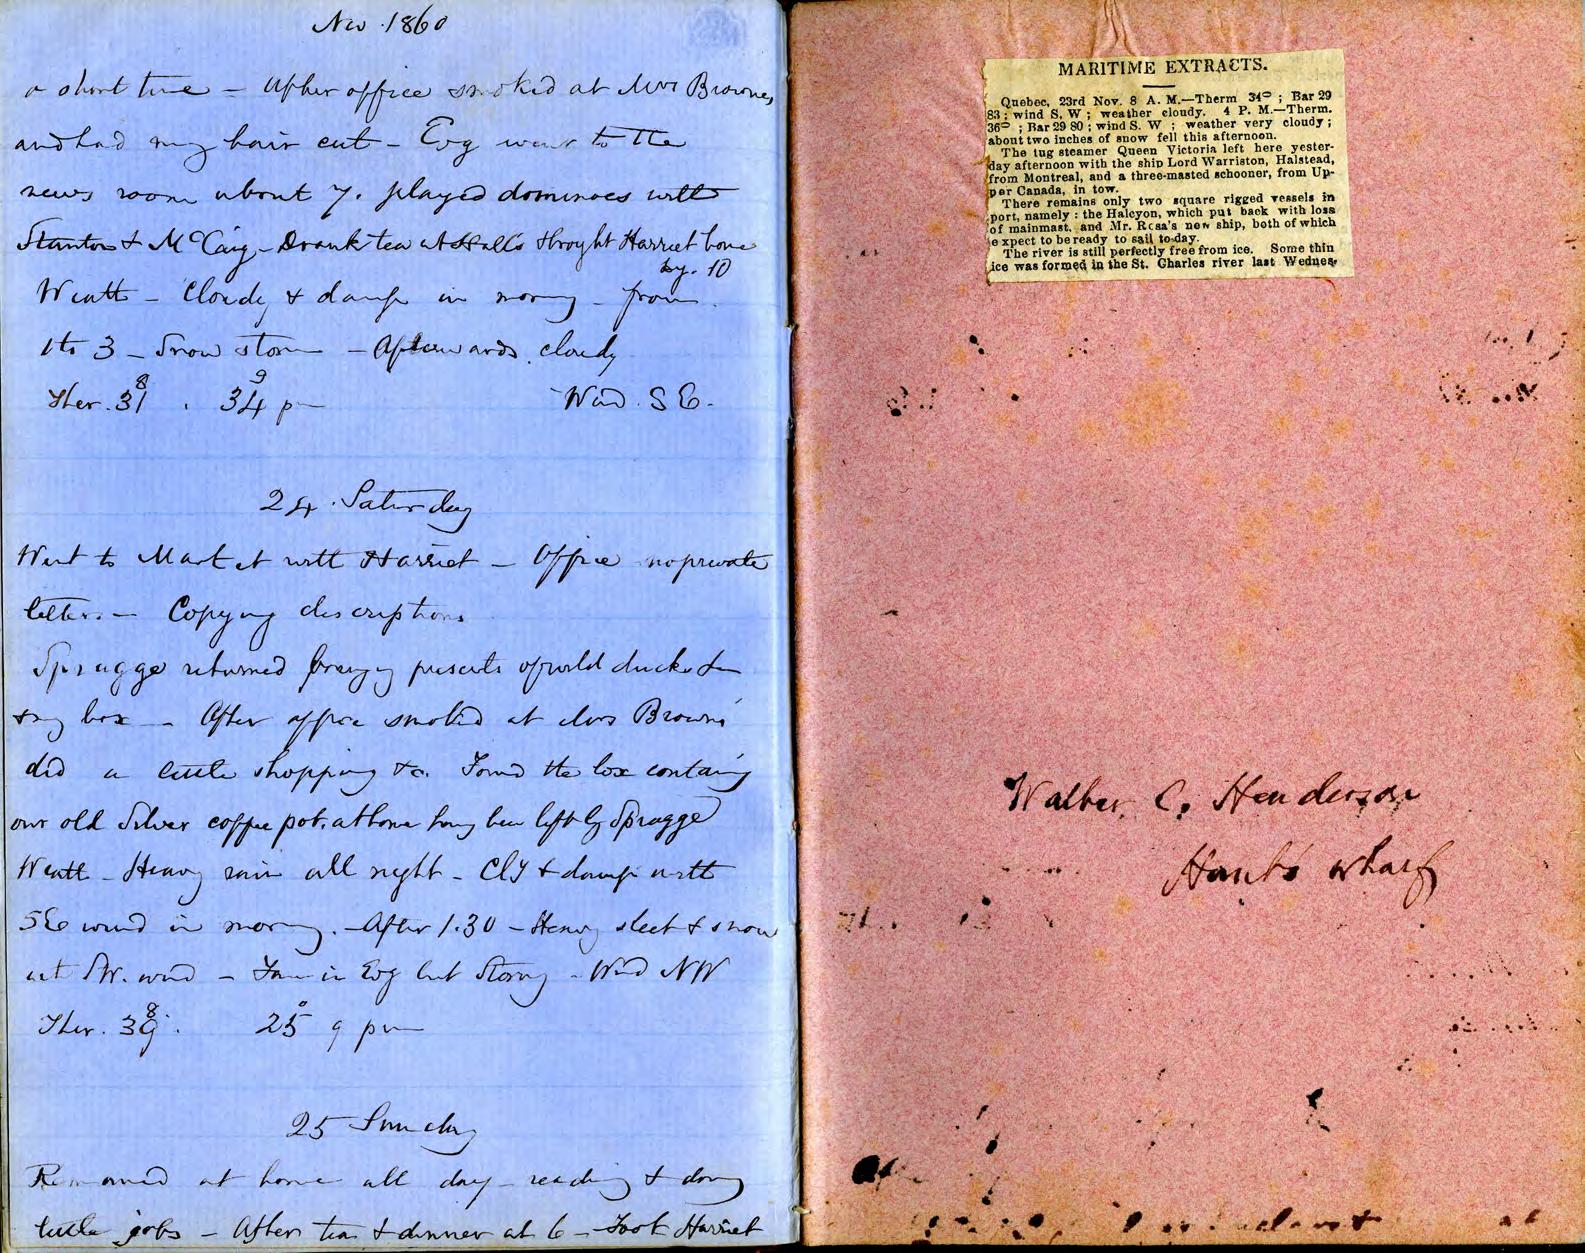 Nov. 1860
a short time – After office smoked at Mrs Brownes
and had my hair cut – Evg went to the
news room about 7. played dominoes with
Stanton & McCaig – Drank tea at Hall's & broght Harriet home
by. 10
Weath – Cloudy & damp in morng – from
1 to 3 – Snow storm – Afterwards cloudy
Ther. 31 8 . 34 9 pm Wind. S E.
24. Saturday
Went to Market with Harriet – Office no private
letters – Copying descriptions
Spragge returned bringg presents of wild ducks
& my box – After office smoked at Mrs Browns
did a little shopping &c. Found the box containg
our old Silver coffee pot. at home havg been left by Spragge
Weath – Heavy rain all night – Cly & damp with
S E wind in morng. – After 1.30 – Heavy sleet & snow
SW. wind – in Evg but Stormy – Wind NW
Ther. 39 8. 25° 9 pm
25 Sunday
Remained at home all day – reading & doing
little jobs – After tea & dinner at 6 – Took Harriet
MARITIME EXTRACTS.
Quebec, 23rd Nov. 8 A. M.—Therm 34° ; Bar 29
83 ; wind S. W ; weather cloudy. 4 P. M.—Therm.
36° ; Bar 29 80 ; wind S. W ; weather very cloudy ;
about two inches of snow fell this afternoon.
The tug steamer Queen Victoria left here yester-
day afternoon with the ship Lord Warriston, Halstead,
from Montreal, and a three-masted schooner, from Up-
per Canada, in tow.
There remains only two square rigged vessels in
port, namely : the Halcyon, which put back with loss
of mainmast, and Mr. Rosa's new ship, both of which
expect to be ready to sail to-day.
The river is still perfectly free from ice. Some thin
ice was formed in the St. Charles river last Wednes-
Walter C. Henderson
Hunt's wharf